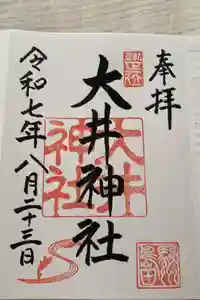 奉拝
大井神社
大井神社
令和七年八月二十三日